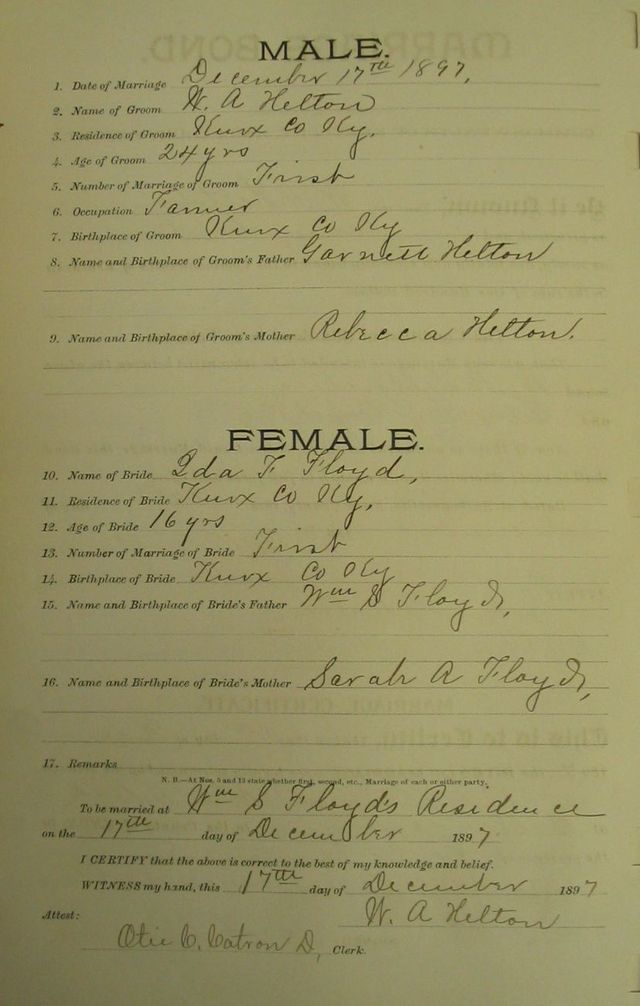 MALE.
1. Date of Marriage December 17th 1897,
2. Name of Groom W. A Helton
3. Residence of Groom Knox Co Ky.
4. Age of Groom 24 yrs
5. Number of Marriage of Groom First
6. Occupation Farmer
7. Birthplace of Groom Knox Co Ky
8. Name and Birthplace of Groom's Father Garnett Helton
9. Name and Birthplace of Groom's Mother Rebecca Helton.
FEMALE.
10. Name of Bride Ida F Floyd,
11. Residence of Bride Knox Co Ky,
12. Age of Bride 16 yrs
13. Number of Marriage of Bride First
14. Birthplace of Bride Knox Co Ky
15. Name and Birthplace of Bride's Father Wm S Floyd,
16. Name and Birthplace of Bride's Mother Sarah A Floyd,
17. Remarks
N. B.—At Nos. 5 and 13 state whether first, second, etc., Marriage of each or either party.
To be married at Wm S Floyd's Residence
on the 17th day of December 1897
I CERTIFY that the above is correct to the best of my knowledge and belief.
WITNESS my hand, this 17th day of December 1897
W. A Helton
Attest:
Otie C. Catron D, Clerk.